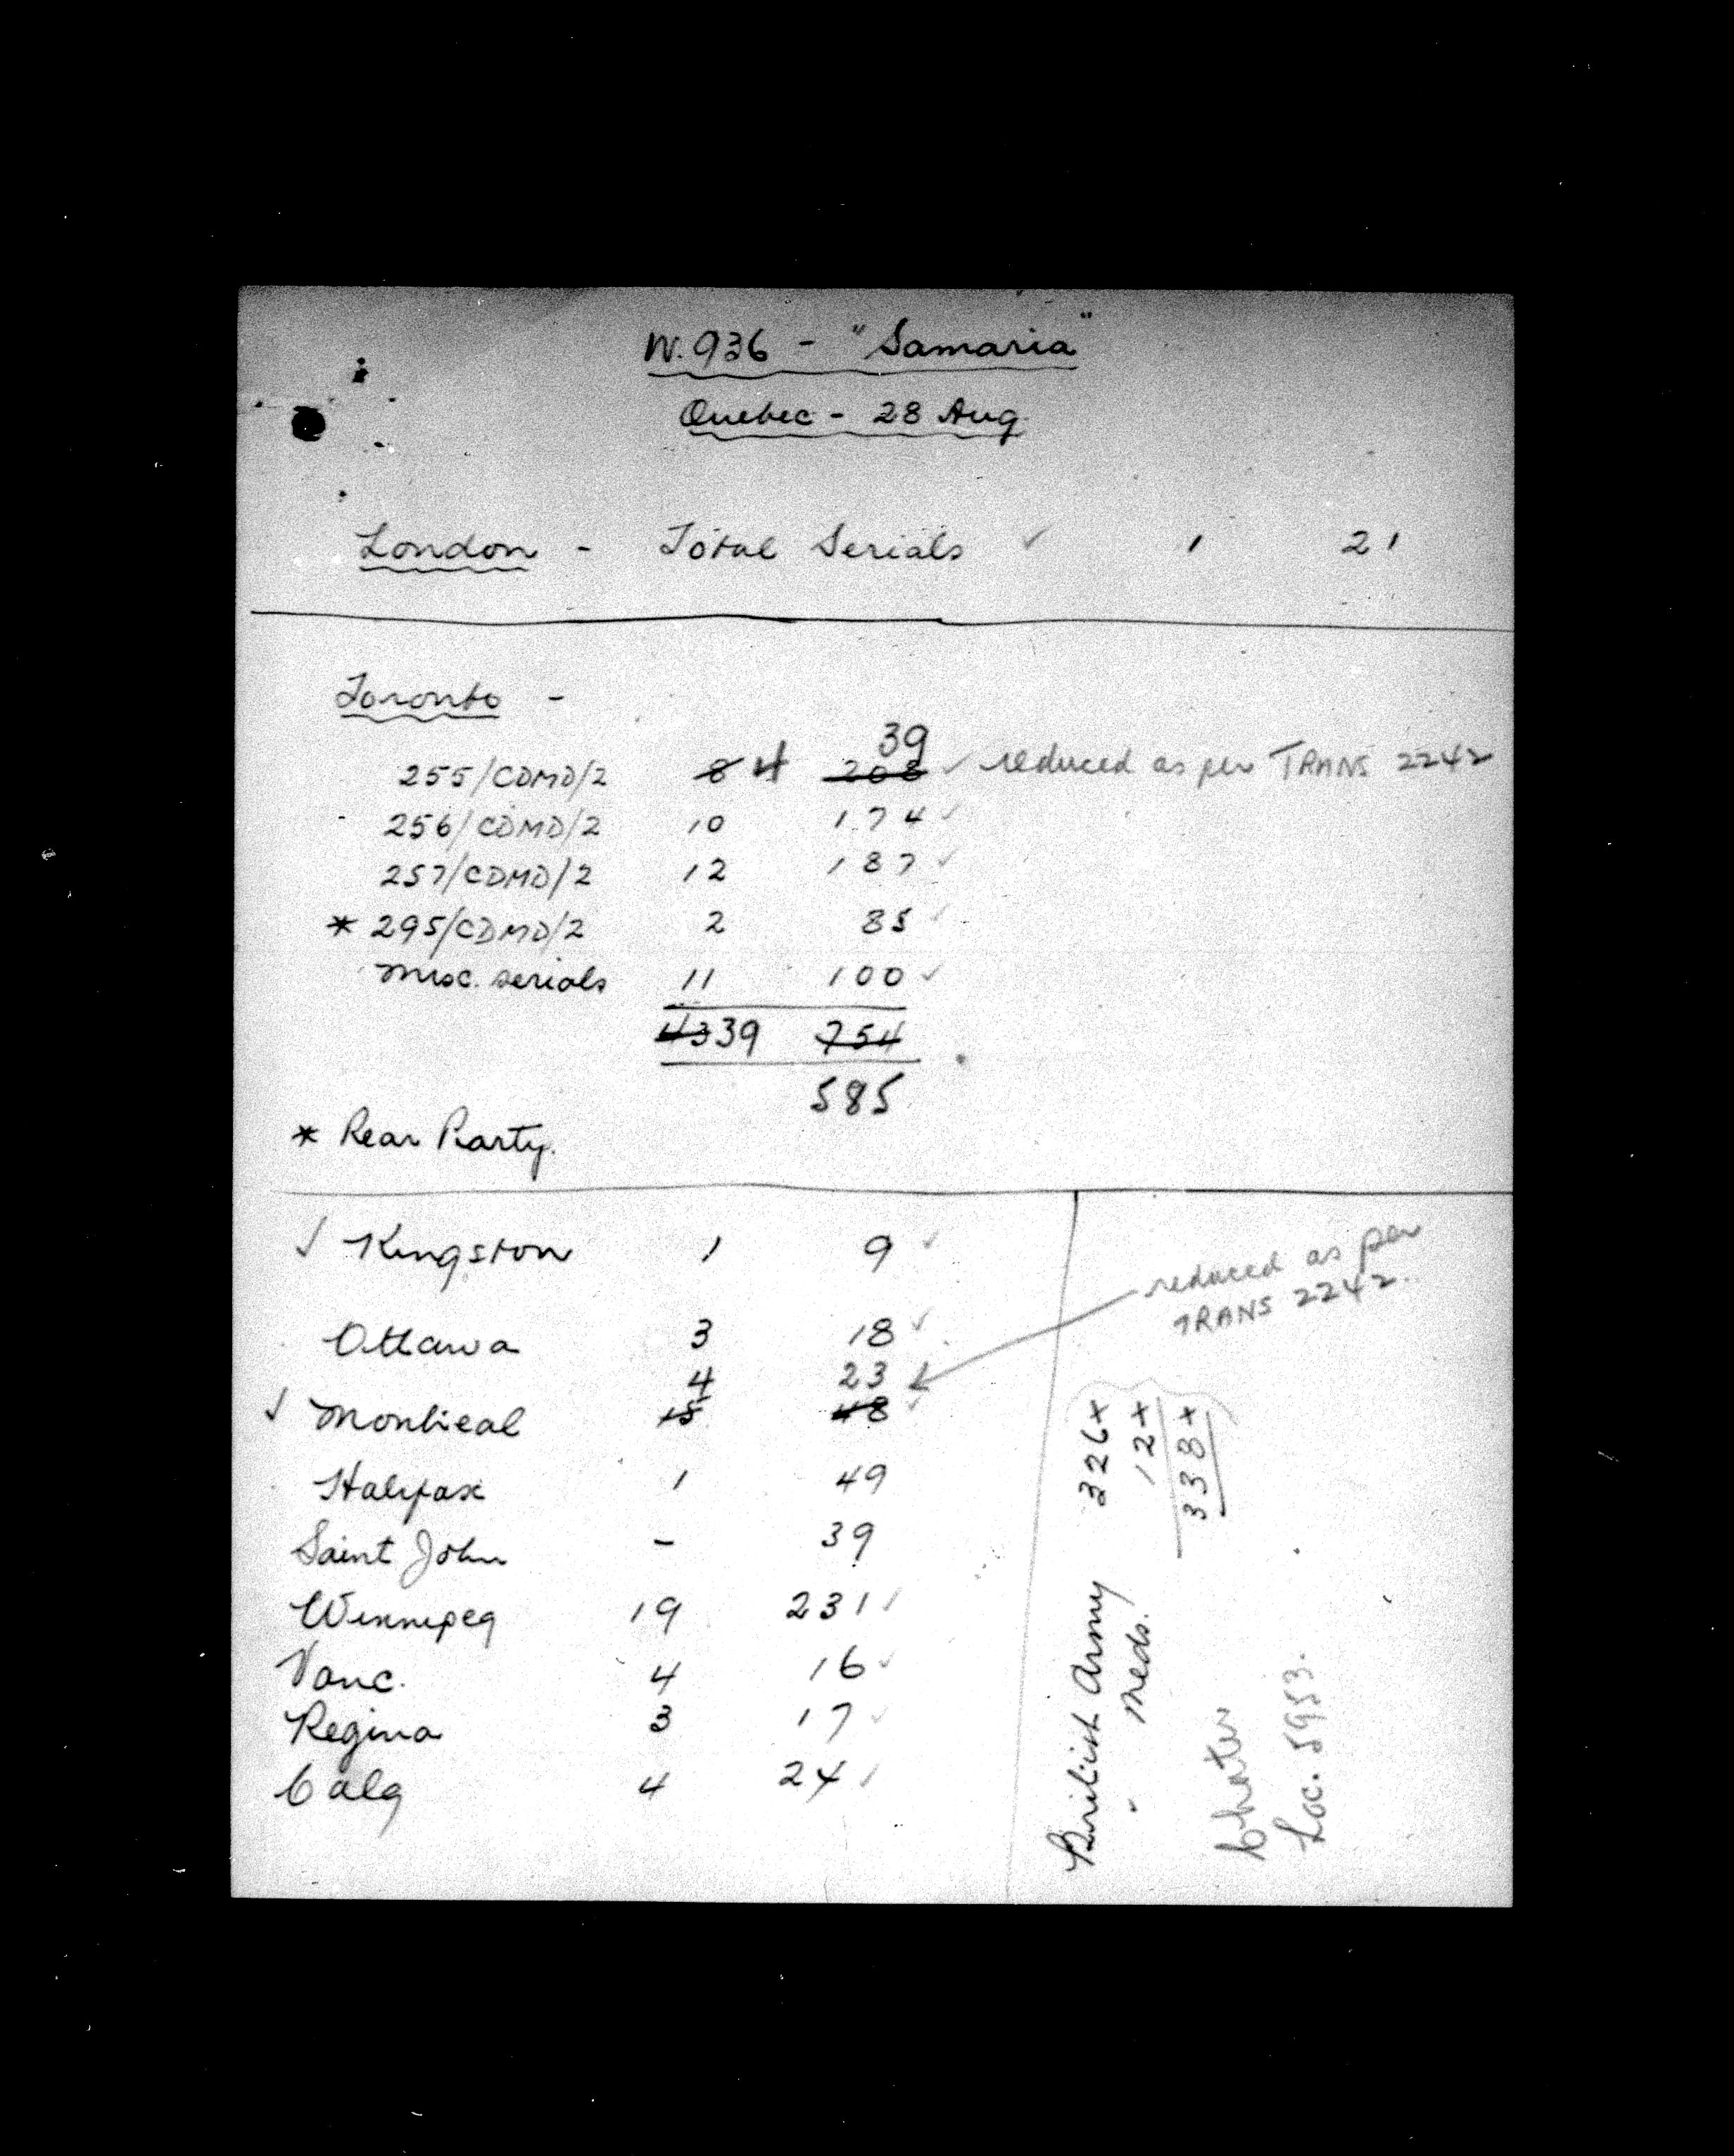 W. 936 - "Samaria"
Quebec - 28 Aug.
London - Total Serials ✓ 1 21
Toronto -
39
255/CDMD/2 8 4 208 ✓ reduced as per TRANS 2242
256/CDMD/2 10 174 ✓
257/CDMD/2 12 187 ✓
* 295/CDMD/2 2 85 ✓
Misc. serials 11 100 ✓
43 39 754
585
* Rear Party.
✓ Kingston 1 9 ✓
reduced as per
TRANS 2242.
Ottawa 3 18 ✓
4 23
✓ Montreal 15 48 ✓
Halifax 1 49
Saint John - 39
Winnipeg 19 231 ✓
Vanc. 4 16 ✓
Regina 3 17 ✓
Calg 4 24 ✓
British Army 326+
" Meds. 12+
338+
Loc. 5953.